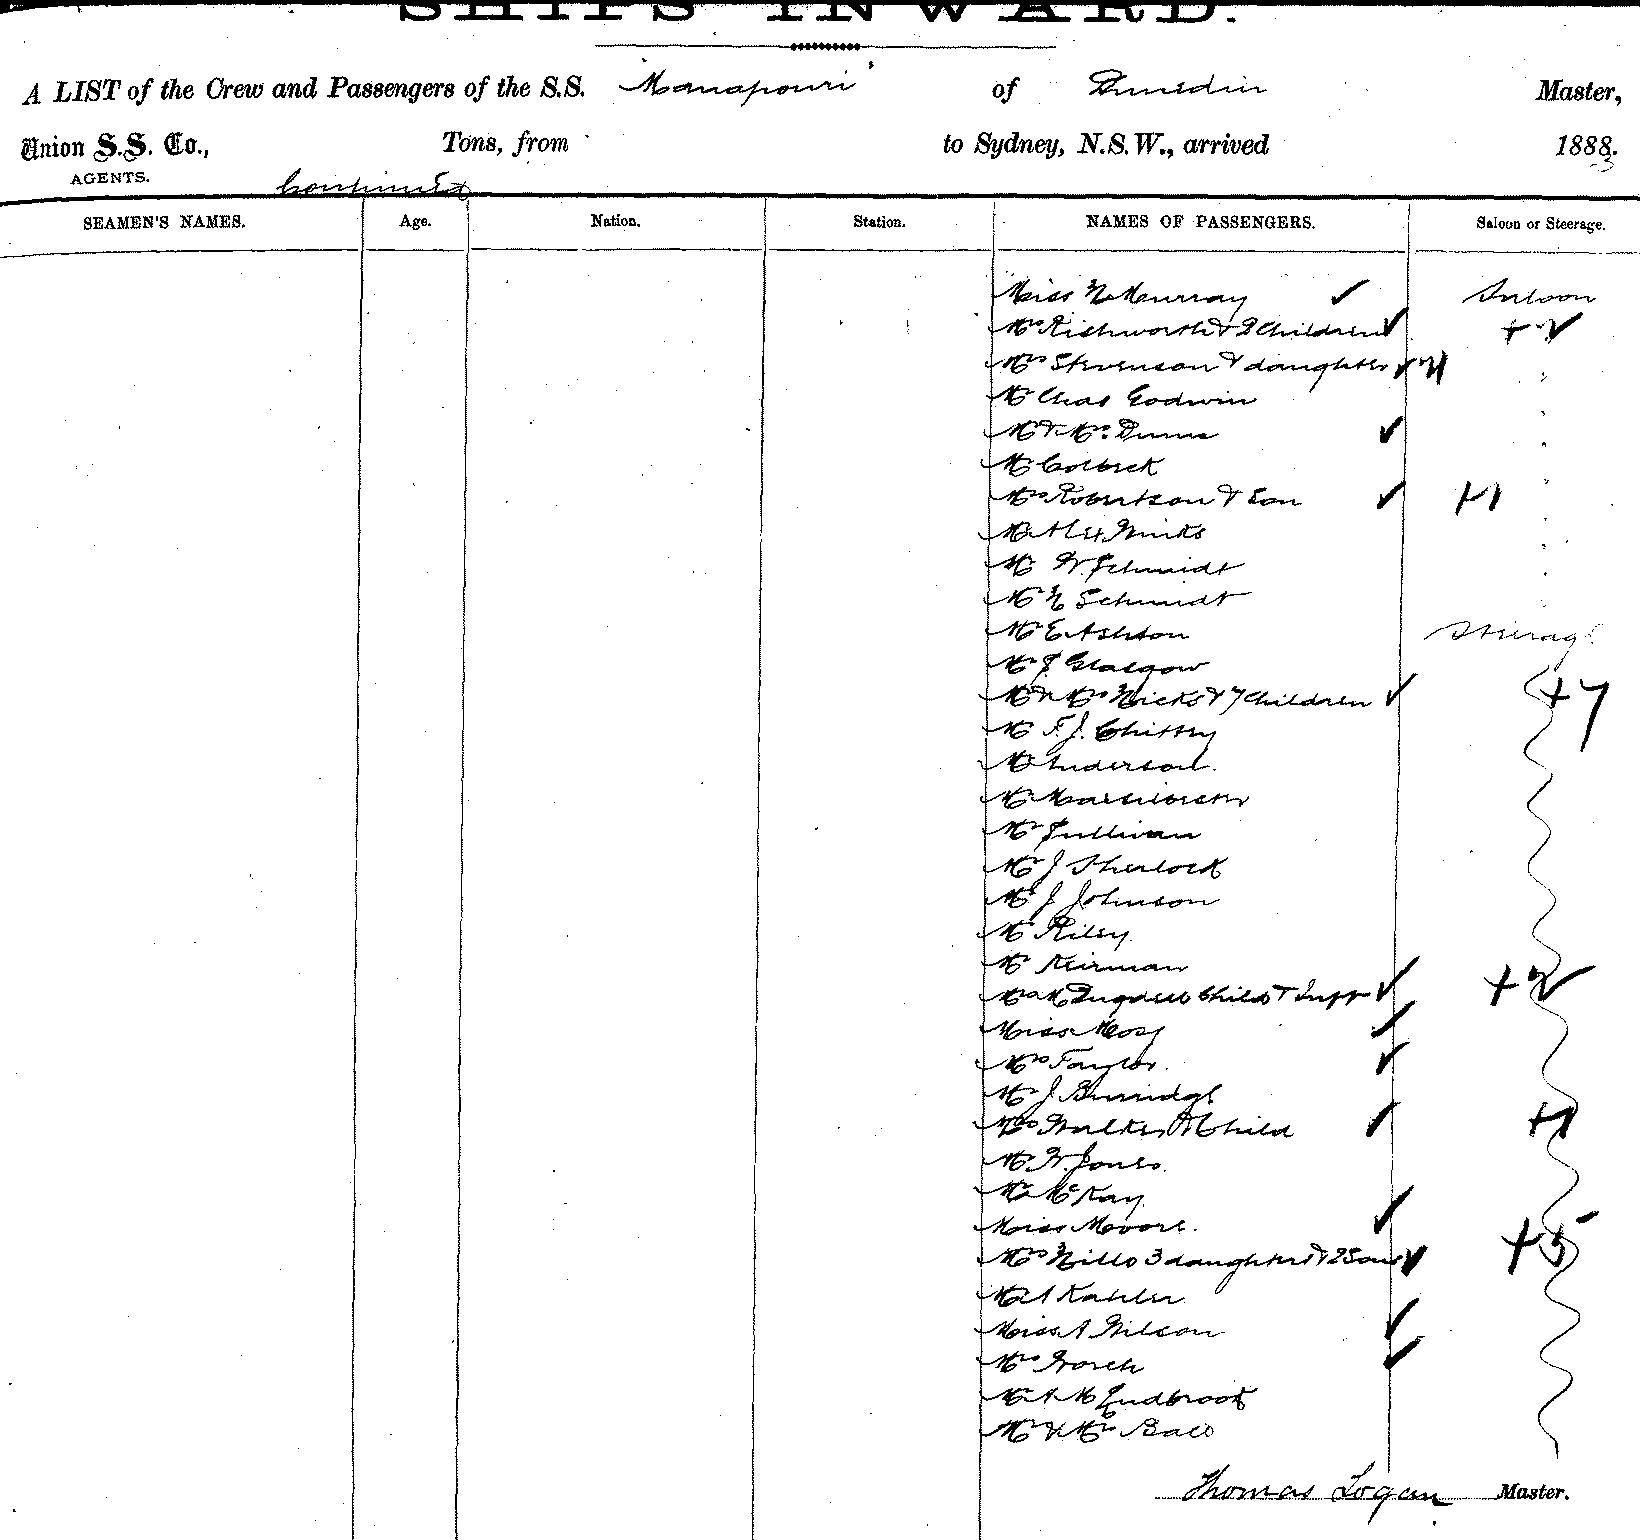 SHIPS INWARD.
A LIST of the Crew and Passengers of the S.S. Manapouri of Dunedin Master,
Union S.S. Co., Tons, from to Sydney, N.S.W., arrived 1888. 3
AGENTS. Continued
SEAMEN'S NAMES. Age. Nation. Station. NAMES OF PASSENGERS. Saloon or Steerage.
Miss H Murray Saloon
Mrs Rishworth & 2 Children + 2
Mrs Stevenson & daughter +1 "
Mr Chas Godwin "
Mr & Mrs Dunn "
Mr Colbeck "
Mrs Robertson & Son +1 "
Mr Alex Winks "
Mr W. Schmidt "
Mr H Schmidt "
Mr E Ashton Steerage
Mr J Glasgow
Mr & Mrs Hicks & 7 Children +7
Mr F. J. Chitty
Mr Anderson.
Mr
Mr Sullivan
Mr J Sherlock
Mr J Johnson
Mr Riley
Mr Keirman
Mrs Child & Inft +2
Miss
Mrs Taylor.
Mr J Burridge
Mrs Walker & Child +1
Mr W. Jones.
Mr McKay
Miss Moore.
Mrs Hills 3 daughters & 2 Sons +5
Mr A Kahler
Miss A Wilson
Mrs
Mr A M
Mr & Mrs Ball
Thomas Logan Master.